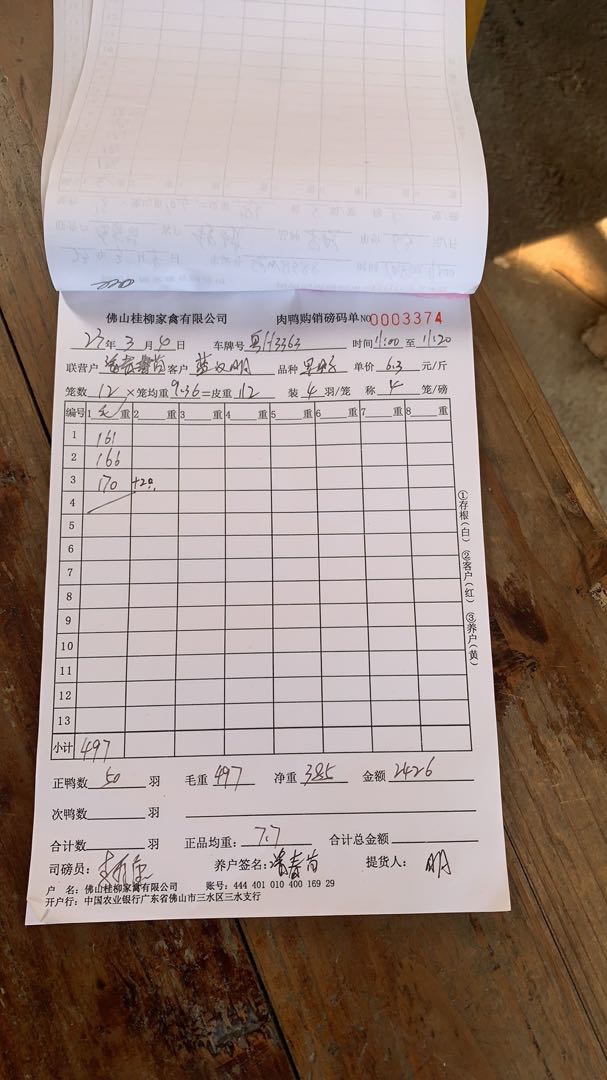 佛山桂柳家禽有限公司 肉鸭购销磅码单 NO 0003374
23年 3月 4日 车牌号 粤H3363 时间 11:00 至 11:20
联营户 客户 品种 单价 6.3 元/斤
笼数 12 ×笼均重 9.36 =皮重 112 装 4 羽/笼 称 4 笼/磅
编号 1 毛 重 2 重 3 重 4 重 5 重 6 重 7 重 8 重
1 161
2 166
3 170 +2只
4
5
6
7
8
9
10
11
12
13
小计 497
正鸭数 50 羽 毛重 497 净重 385 金额 2426
次鸭数 羽
合计数 羽 正品均重: 7.7 合计总金额
司磅员: 养户签名: 提货人: 明
户 名: 佛山桂柳家禽有限公司 账号: 444 401 010 400 169 29
开户行: 中国农业银行广东省佛山市三水区三水支行
①存根(白) ②客户(红) ③养户(黄)